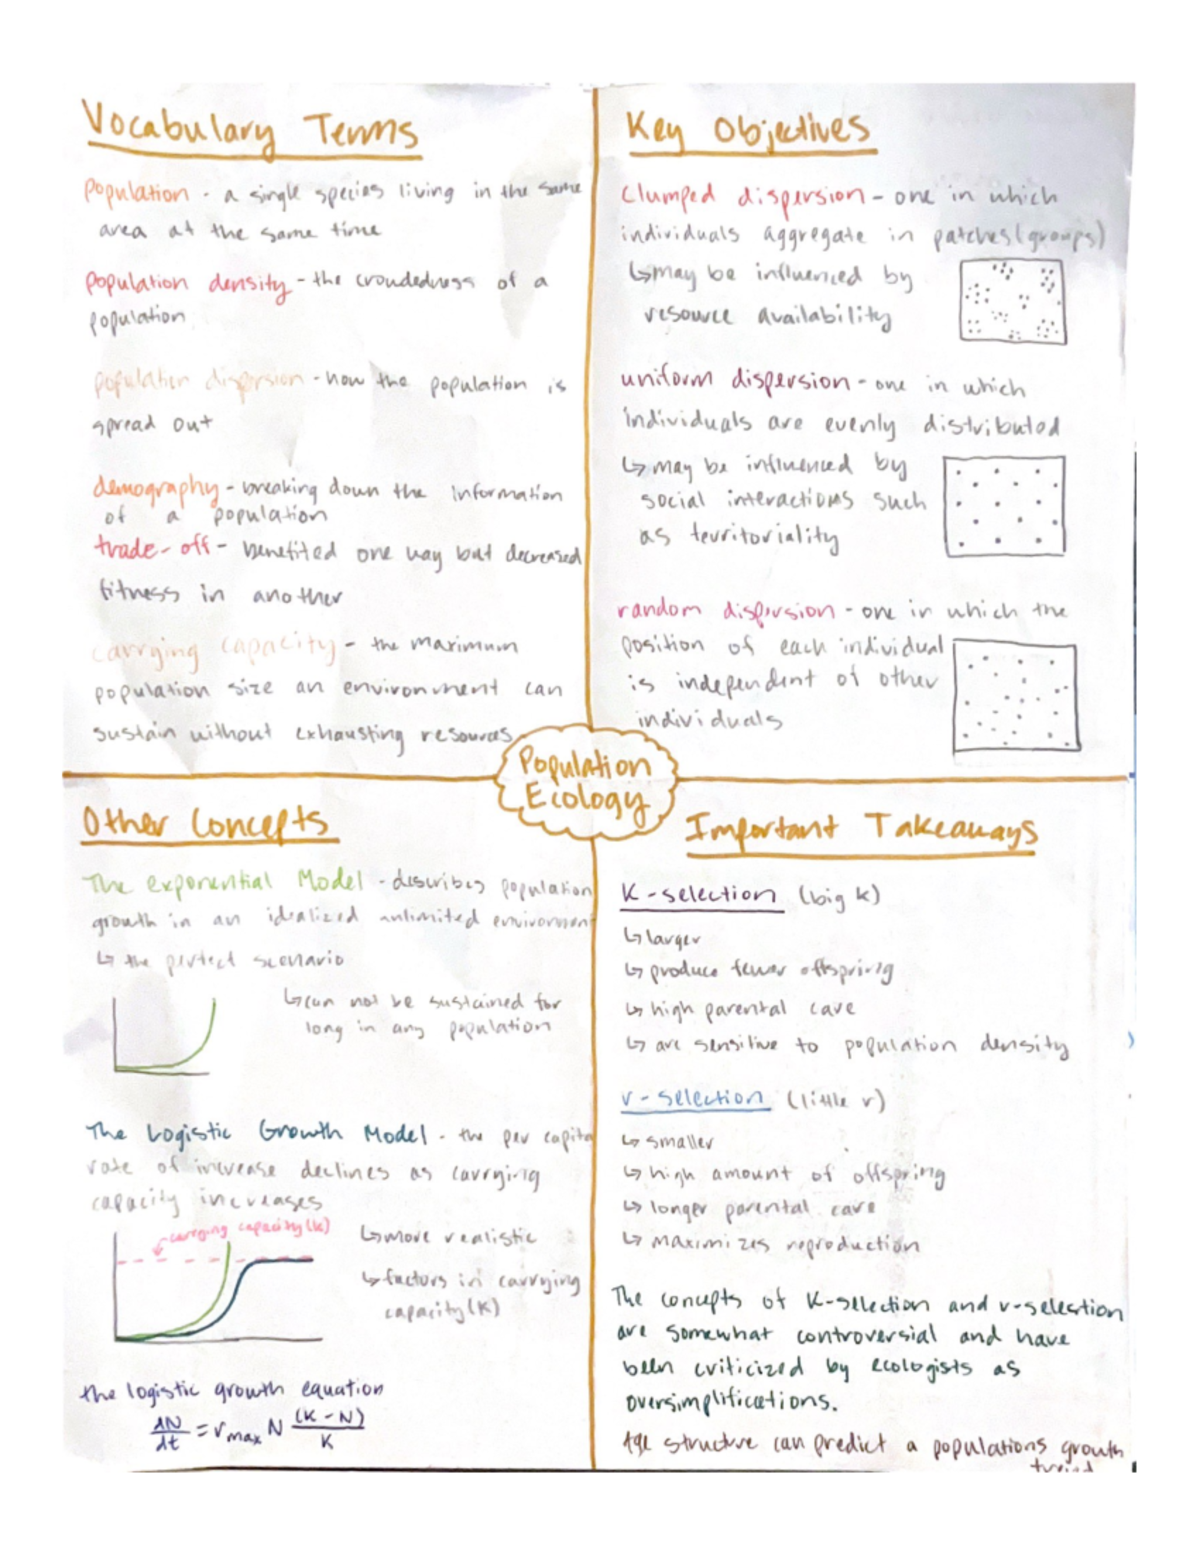 Vocabulary Terms
Population - a single species living in the same
area at the same time
population density - the crowdedness of a
population
population dispersion - how the population is
spread out
demography - breaking down the information
of a population
trade-off - benefited one way but decreased
fitness in another
carrying capacity - the maximum
population size an environment can
sustain without exhausting resources
Key Objectives
Clumped dispersion - one in which
individuals aggregate in patches (groups)
↳ may be influenced by
resource availability
uniform dispersion - one in which
individuals are evenly distributed
↳ may be influenced by
social interactions such
as territoriality
random dispersion - one in which the
position of each individual
is independent of other
individuals
Population
Ecology
Other Concepts
The exponential Model - describes population
growth in an idealized unlimited environment
↳ the perfect scenario
↳ can not be sustained for
long in any population
The Logistic Growth Model - the per capita
rate of increase declines as carrying
capacity increases
carrying capacity (K)
↳ more realistic
↳ factors in carrying
capacity (K)
the logistic growth equation
dN/dt = rmax N (K - N)/K
Important Takeaways
K-selection (big K)
↳ larger
↳ produce fewer offspring
↳ high parental care
↳ are sensitive to population density
r-selection (little r)
↳ smaller
↳ high amount of offspring
↳ longer parental care
↳ maximizes reproduction
The concepts of K-selection and r-selection
are somewhat controversial and have
been criticized by ecologists as
oversimplifications.
Age structure can predict a populations growth
trend